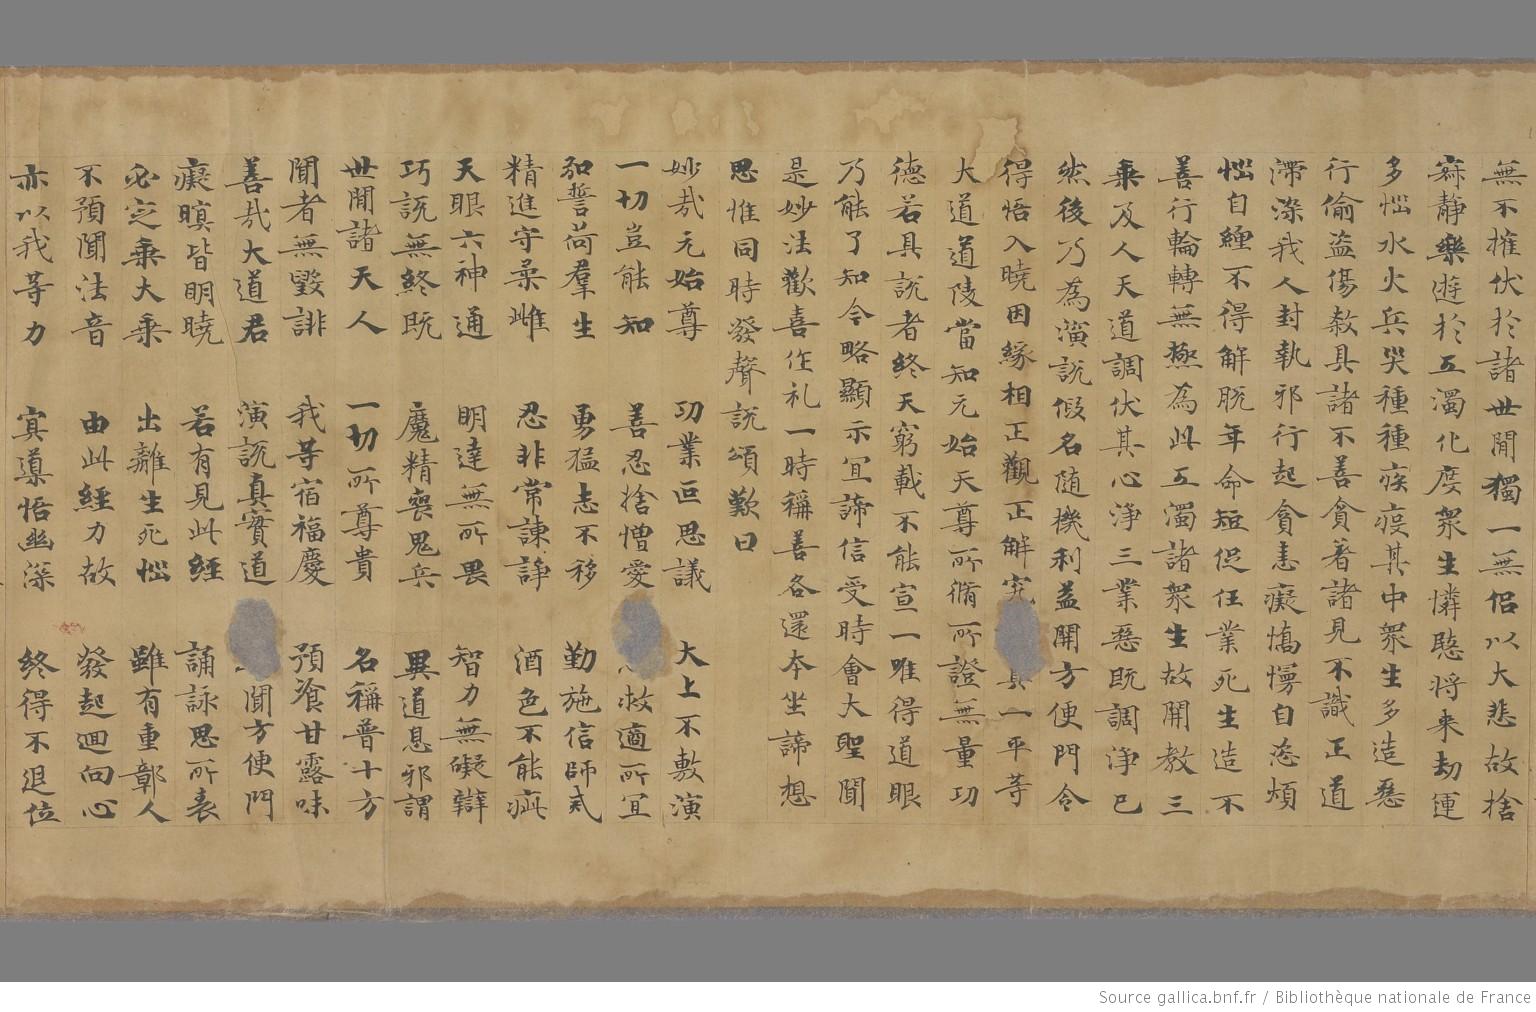 無不摧伏於諸世間獨一無侶以大悲故捨
寂靜樂遊於五濁化度衆生憐愍將来劫運
多惱水火兵災種種疾疫其中衆生多造惡
行偷盜傷煞具諸不善貪著諸見不識正道
滯深我人封執邪行起貪恚癡憍慢自恣煩
惱自纏不得解脫年命短促任業死生造不
善行輪轉無極為此五濁諸衆生故開教三
乗及人天道調伏其心淨三業惡既調淨已
然後乃為演說假名随機利益開方便門令
得悟入曉因緣相正觀正解究具一平等
大道道陵當知元始天尊所脩所證無量功
德若具說者終天窮載不能宣一唯得道眼
乃能了知今略顯示冝諦信受時會大聖聞
是妙法歡喜作礼一時稱善各還本坐諦想
思惟同時發聲說頌歎曰
妙哉元始尊 功業叵思議 大上不敷演
一切豈能知 善忍捨憎愛 救適所冝
弘誓荷羣生 勇猛志不移 勤施信師戒
精進守柔雌 忍非常諫諍 酒色不能疵
天眼六神通 明達無所畏 智力無礙辯
巧說無終既 魔精喪鬼兵 異道息邪謂
世間諸天人 一切所尊貴 名稱普十方
聞者無毀誹 我等宿福慶 預飡甘露味
善哉大道君 演說真實道 聞方便門
癡瞑皆明曉 若有見此經 誦詠思所表
必定乗大乗 出離生死惱 雖有重鄣人
不預聞法音 由此經力故 發起迴向心
亦以我等力 冥導悟幽深 終得不退位
Source gallica.bnf.fr / Bibliothèque nationale de France